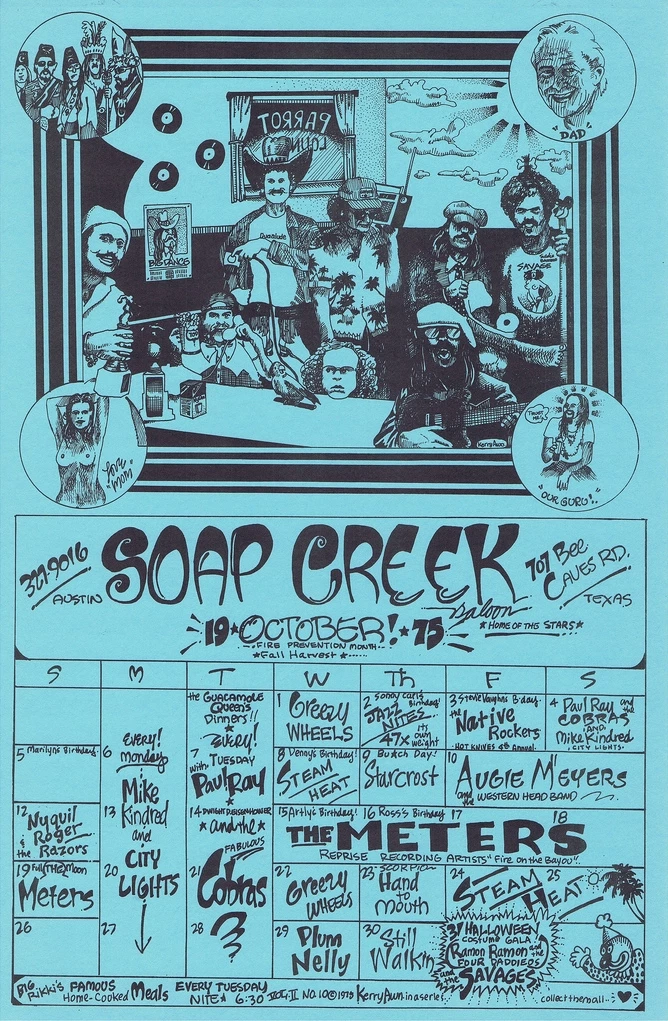 PARROT
BIG DANCE
Quaalude
SAVAGE
DAD
Kerry Awn
Love
Mom
TRUST
ME!
"OUR GURU!"
327-9016
AUSTIN
SOAP CREEK
Saloon
★HOME OF THE STARS★
707 Bee
CAVES RD.
TEXAS
19★OCTOBER!★75
FIRE PREVENTION MONTH
★Fall Harvest★
S M T W Th F S
the GUACAMOLE
Queen's
Dinners!!
★
EVERY!
1 Greezy
WHEELS
2 Sonny Carl's Birthday!
JAZZ
NITES
47x its
own
weight
3 Stevie Vaughn's B'day.
the Native
Rockers
HOT KNIVES 4th Annual.
4 Paul Ray and
the COBRAS
AND
Mike Kindred
CITY LIGHTS
5 Marilyn's Birthday!
6 EVERY!
monday
Mike
13 Kindred
and
CITY
20 LIGHTS
27
7 TUESDAY
with
Paul Ray
★
14 DWIGHT D. EISENHOWER
★and the★
FABULOUS
21 Cobras
28 ?
8 Denny's Birthday!
STEAM
HEAT
9 Butch Day!
Starcrost
10
AUGIE MEYERS
and the WESTERN HEAD BAND
12
Nyquil
Roger
& the Razors
15 Artly's Birthday!
16 Ross's Birthday
17
18
THE METERS
REPRISE RECORDING ARTISTS "Fire on the Bayou"
19 Full (THE) Moon
Meters
22
Greezy
WHEELS
23 SCORPIO
Hand
to
Mouth
24 25
STEAM HEAT
26
29
Plum
Nelly
30 Still
Walkin
31 HALLOWEEN
COSTUME GALA
Ramon Ramon and the
FOUR DADDIEOS
and the SAVAGES
Big
Rikki's FAMOUS
Home-Cooked Meals
EVERY TUESDAY
NITE★ 6:30
VOL. II NO. 10 © 1975 Kerry Awn in a series
collect them all